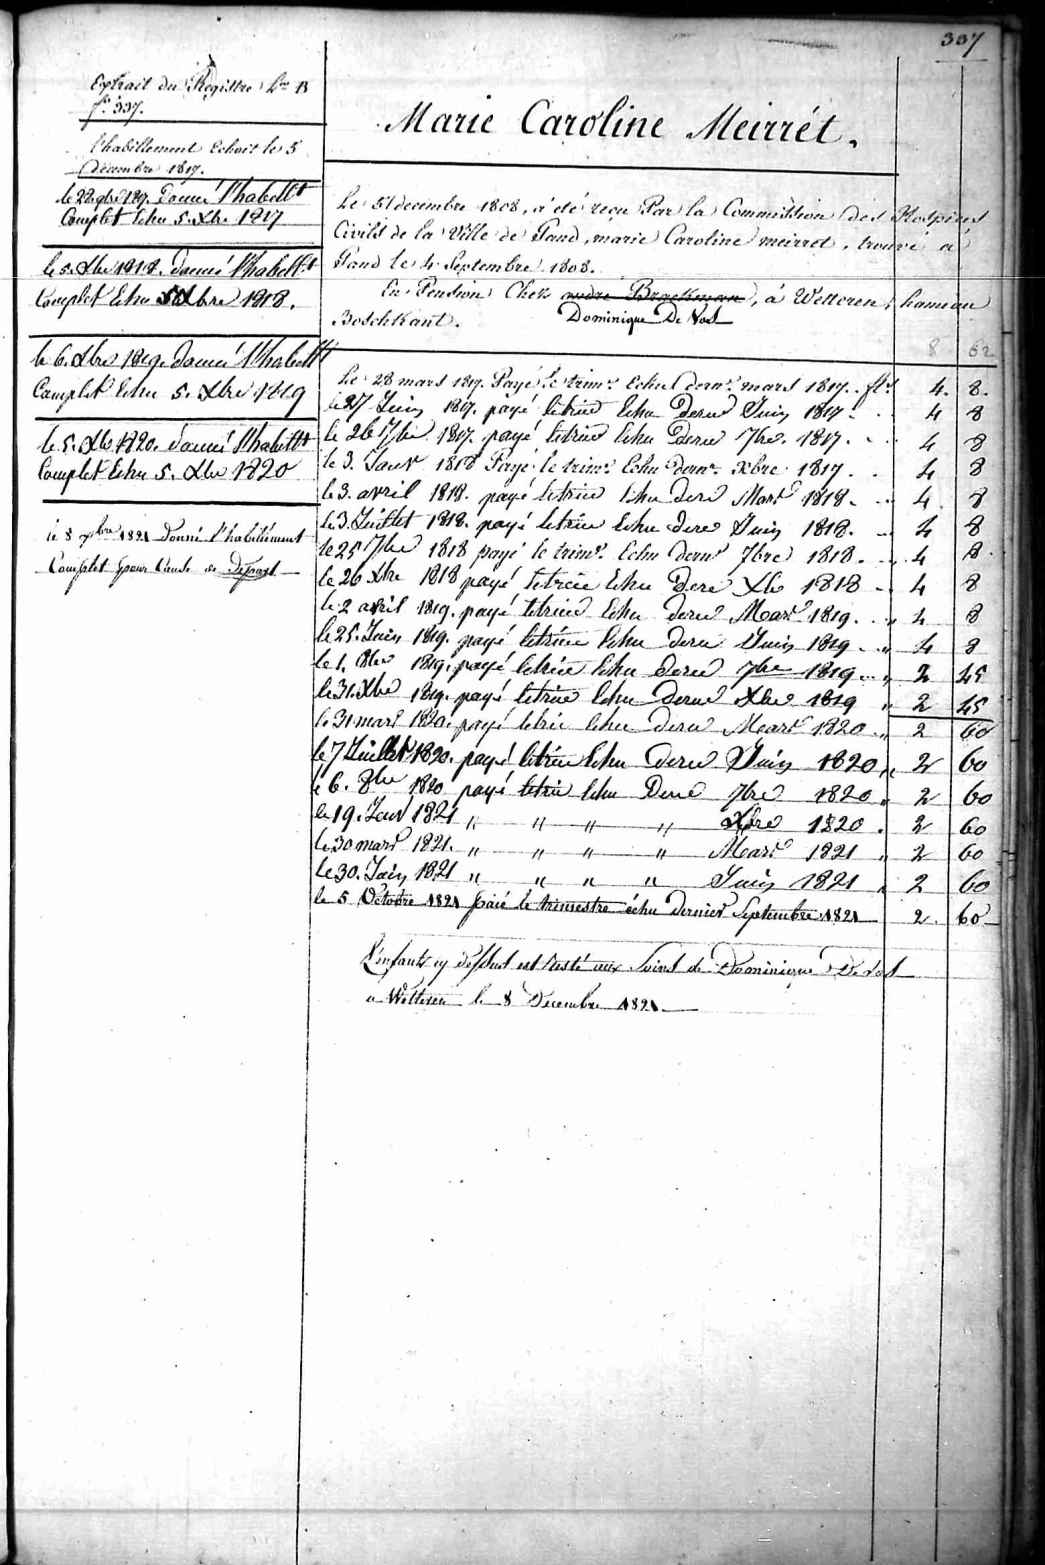 337
Extrait du Registre L.re B
f.o 337.
l'habillement Echoit le 5
décembre 1817.
le 22 9bre 1817. donné l'habillt
Complet Echu 5. Xbre 1817
le 5. Xbre 1818. donné l'habillt
Complet Echu 5 Xbre 1818.
le 6. Xbre 1819. donné l'habillt
Complet Echu 5. Xbre 1819
le 5. Xbre 1820. donné l'habillt
Complet Echu 5. Xbre 1820
le 8 xbre 1821 donné l'habillement
Complet pour Cause de depart
Marie Caroline Meirrét.
Le 31 decembre 1808, a été reçu Par la Commission des Hospices
Civils de la Ville de Gand, marie Caroline meirret, trouvé à
Gand le 4 Septembre 1808.
En Pension Chez andre Braekman, à Wetteren, hameau
Boschkant. Dominique De Vos
8 62
Le 28 mars 1817. Payé le trimr. Echu dernr. mars 1817. fls 4. 8.
le 27 Juin 1817. payé letrim Echu dern Juin 1817. 4 8
le 26 7bre 1817. payé letrim Echu dern 7bre. 1817. 4 8
le 3. Janvr 1818 Payé le trimr. Echu dernr. xbre 1817. 4 8
le 3. avril 1818. payé letrim Echu dern Mars 1818. 4 8
le 3. Juillet 1818. payé letrim Echu dern Juin 1818. 4 8
le 25 7bre 1818 payé le trimr. Echu dernr 7bre 1818. 4 8.
le 26 Xbre 1818 payé letrim Echu dern Xbre 1818 4 8
le 2 avril 1819. payé letrim Echu dern Mars 1819. 4 8
le 25. Juin 1819. payé letrim Echu dern Juin 1819 4 8
le 1. 8bre 1819. payé letrim Echu dern 7bre 1819 2 45
le 31. Xbre 1819. payé letrim Echu dern Xbre 1819 2 45
le 31 mars 1820. payé letrim Echu dern Mars 1820 2 60
le 7 Juillet 1820. payé letrim Echu dern Juin 1820 2 60
le 6. 8bre 1820 payé letrim Echu dern 7bre 1820 2 60
le 19. Janv 1821 " " " " Xbre 1820 . 2 60
le 30 mars 1821. " " " " Mars 1821 " 2 60
le 30. Juin 1821 " " " " Juin 1821 2 60
le 5 Octobre 1821 païé le trimestre échu dernier Septembre 1821 2. 60
L'enfant cy dessus est resté aux Soins de Dominique De Vos
a Wetteren le 8 Decembre 1821